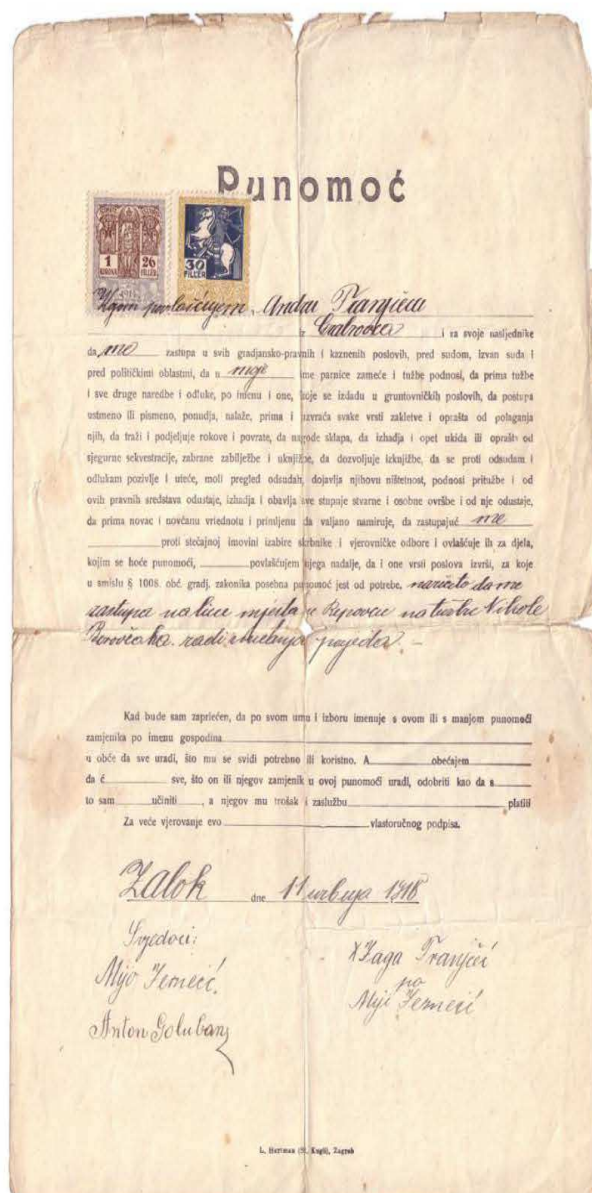 Punomoć
1 26
KORUNA FILLER
30
FILLER
Kojom povlašćujem Andru Franjčeca
iz Grabrovca i za svoje nasljednike
da me zastupa u svih gradjansko-pravnih i kaznenih poslovih, pred sudom, izvan suda i
pred političkimi oblastmi, da u moje ime parnice zameće i tužbe podnosi, da prima tužbe
i sve druge naredbe i odluke, po imenu i one, koje se izdadu u gruntovničkih poslovih, da postupa
ustmeno ili pismeno, ponudja, nalaže, prima i uzvraća svake vrsti zakletve i oprašta od polaganja
njih, da traži i podjeljuje rokove i povrate, da nagode sklapa, da izhadja i opet ukida ili oprašta od
sjegurne sekvestracije, zabrane zabilježbe i uknjižbe, da dozvoljuje izknjižbe, da se proti odsudam i
odlukam pozivlje i uteče, moli pregled odsudah, dojavlja njihovu ništetnost, podnosi pritužbe i od
ovih pravnih sredstava odustaje, izhadja i obavlja sve stupnje stvarne i osobne ovršbe i od nje odustaje,
da prima novac i novčanu vriednotu i primljenu da valjano namiruje, da zastupajuć me
proti stečajnoj imovini izabire skrbnike i vjerovničke odbore i ovlašćuje ih za djela,
kojim se hoće punomoći, povlašćujem njega nadalje, da i one vrsti poslova izvrši, za koje
u smislu § 1008. obć. gradj. zakonika posebna punomoć jest od potrebe, naročito da me
zastupa na lice mjesta u Repovcu na tužbe Nikole
Borovčaka radi smetanja posjeda. –
Kad bude sam zapriečen, da po svom umu i izboru imenuje s ovom ili s manjom punomoći
zamjenika po imenu gospodina
u obće da sve uradi, što mu se svidi potrebno ili koristno. A obećajem
da ć sve, što on ili njegov zamjenik u ovoj punomoći uradi, odobriti kao da s
to sam učiniti, a njegov mu trošak i zaslužbu platiti
Za veće vjerovanje evo vlastoručnog podpisa.
Zalok dne 11 1918
Svjedoci:
Mijo Jemeić.
Anton Golubanz
X Jaga Franjčec
po
Miji Jemeić
L. Hartman (St. Kugli), Zagreb